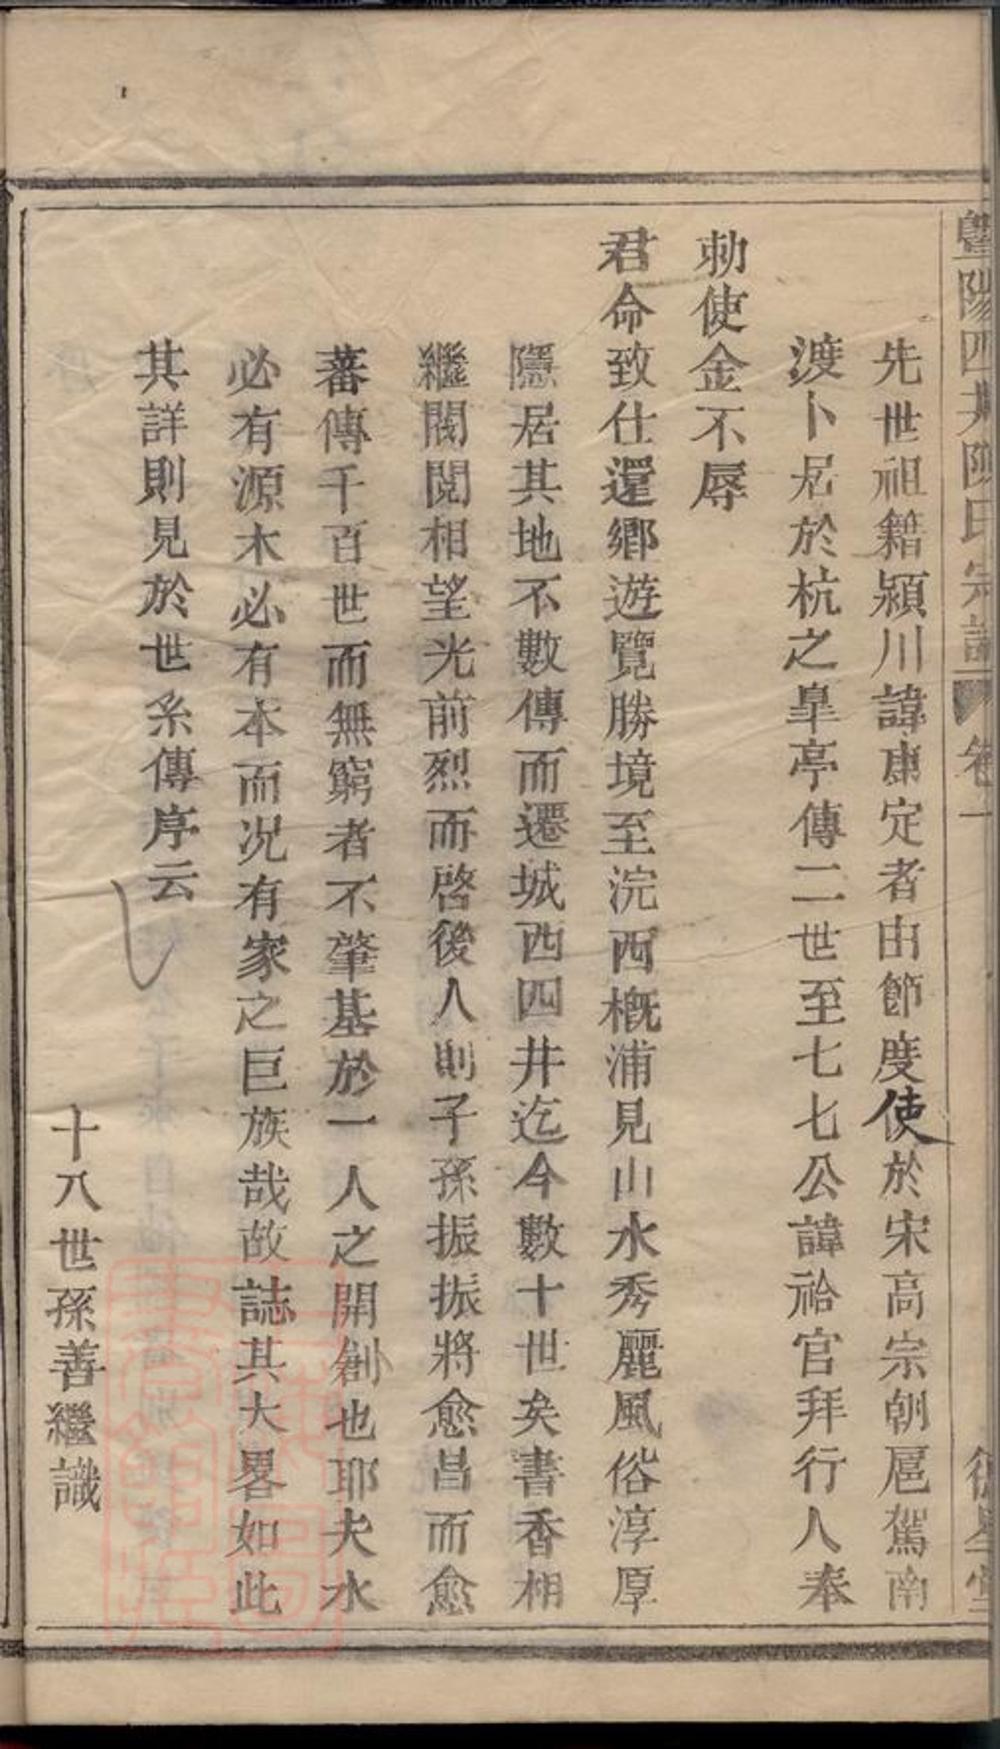 暨陽四井陳氏宗譜 卷一
先世祖籍潁川諱康定者由節度使於宋高宗朝扈駕南
渡卜居於杭之臯亭傳二世至七七公諱祫官拜行人奉
勅使金不辱
君命致仕還鄉遊覽勝境至浣西概浦見山水秀麗風俗淳厚
隱居其地不數傳而遷城西四井迄今數十世矣書香相
繼閥閱相望光前烈而啓後人則子孫振振將愈昌而愈
蕃傳千百世而無窮者不肇基於一人之開創也耶夫水
必有源木必有本而况有家之巨族哉故誌其大畧如此
其詳則見於世系傳序云
十八世孫善繼識